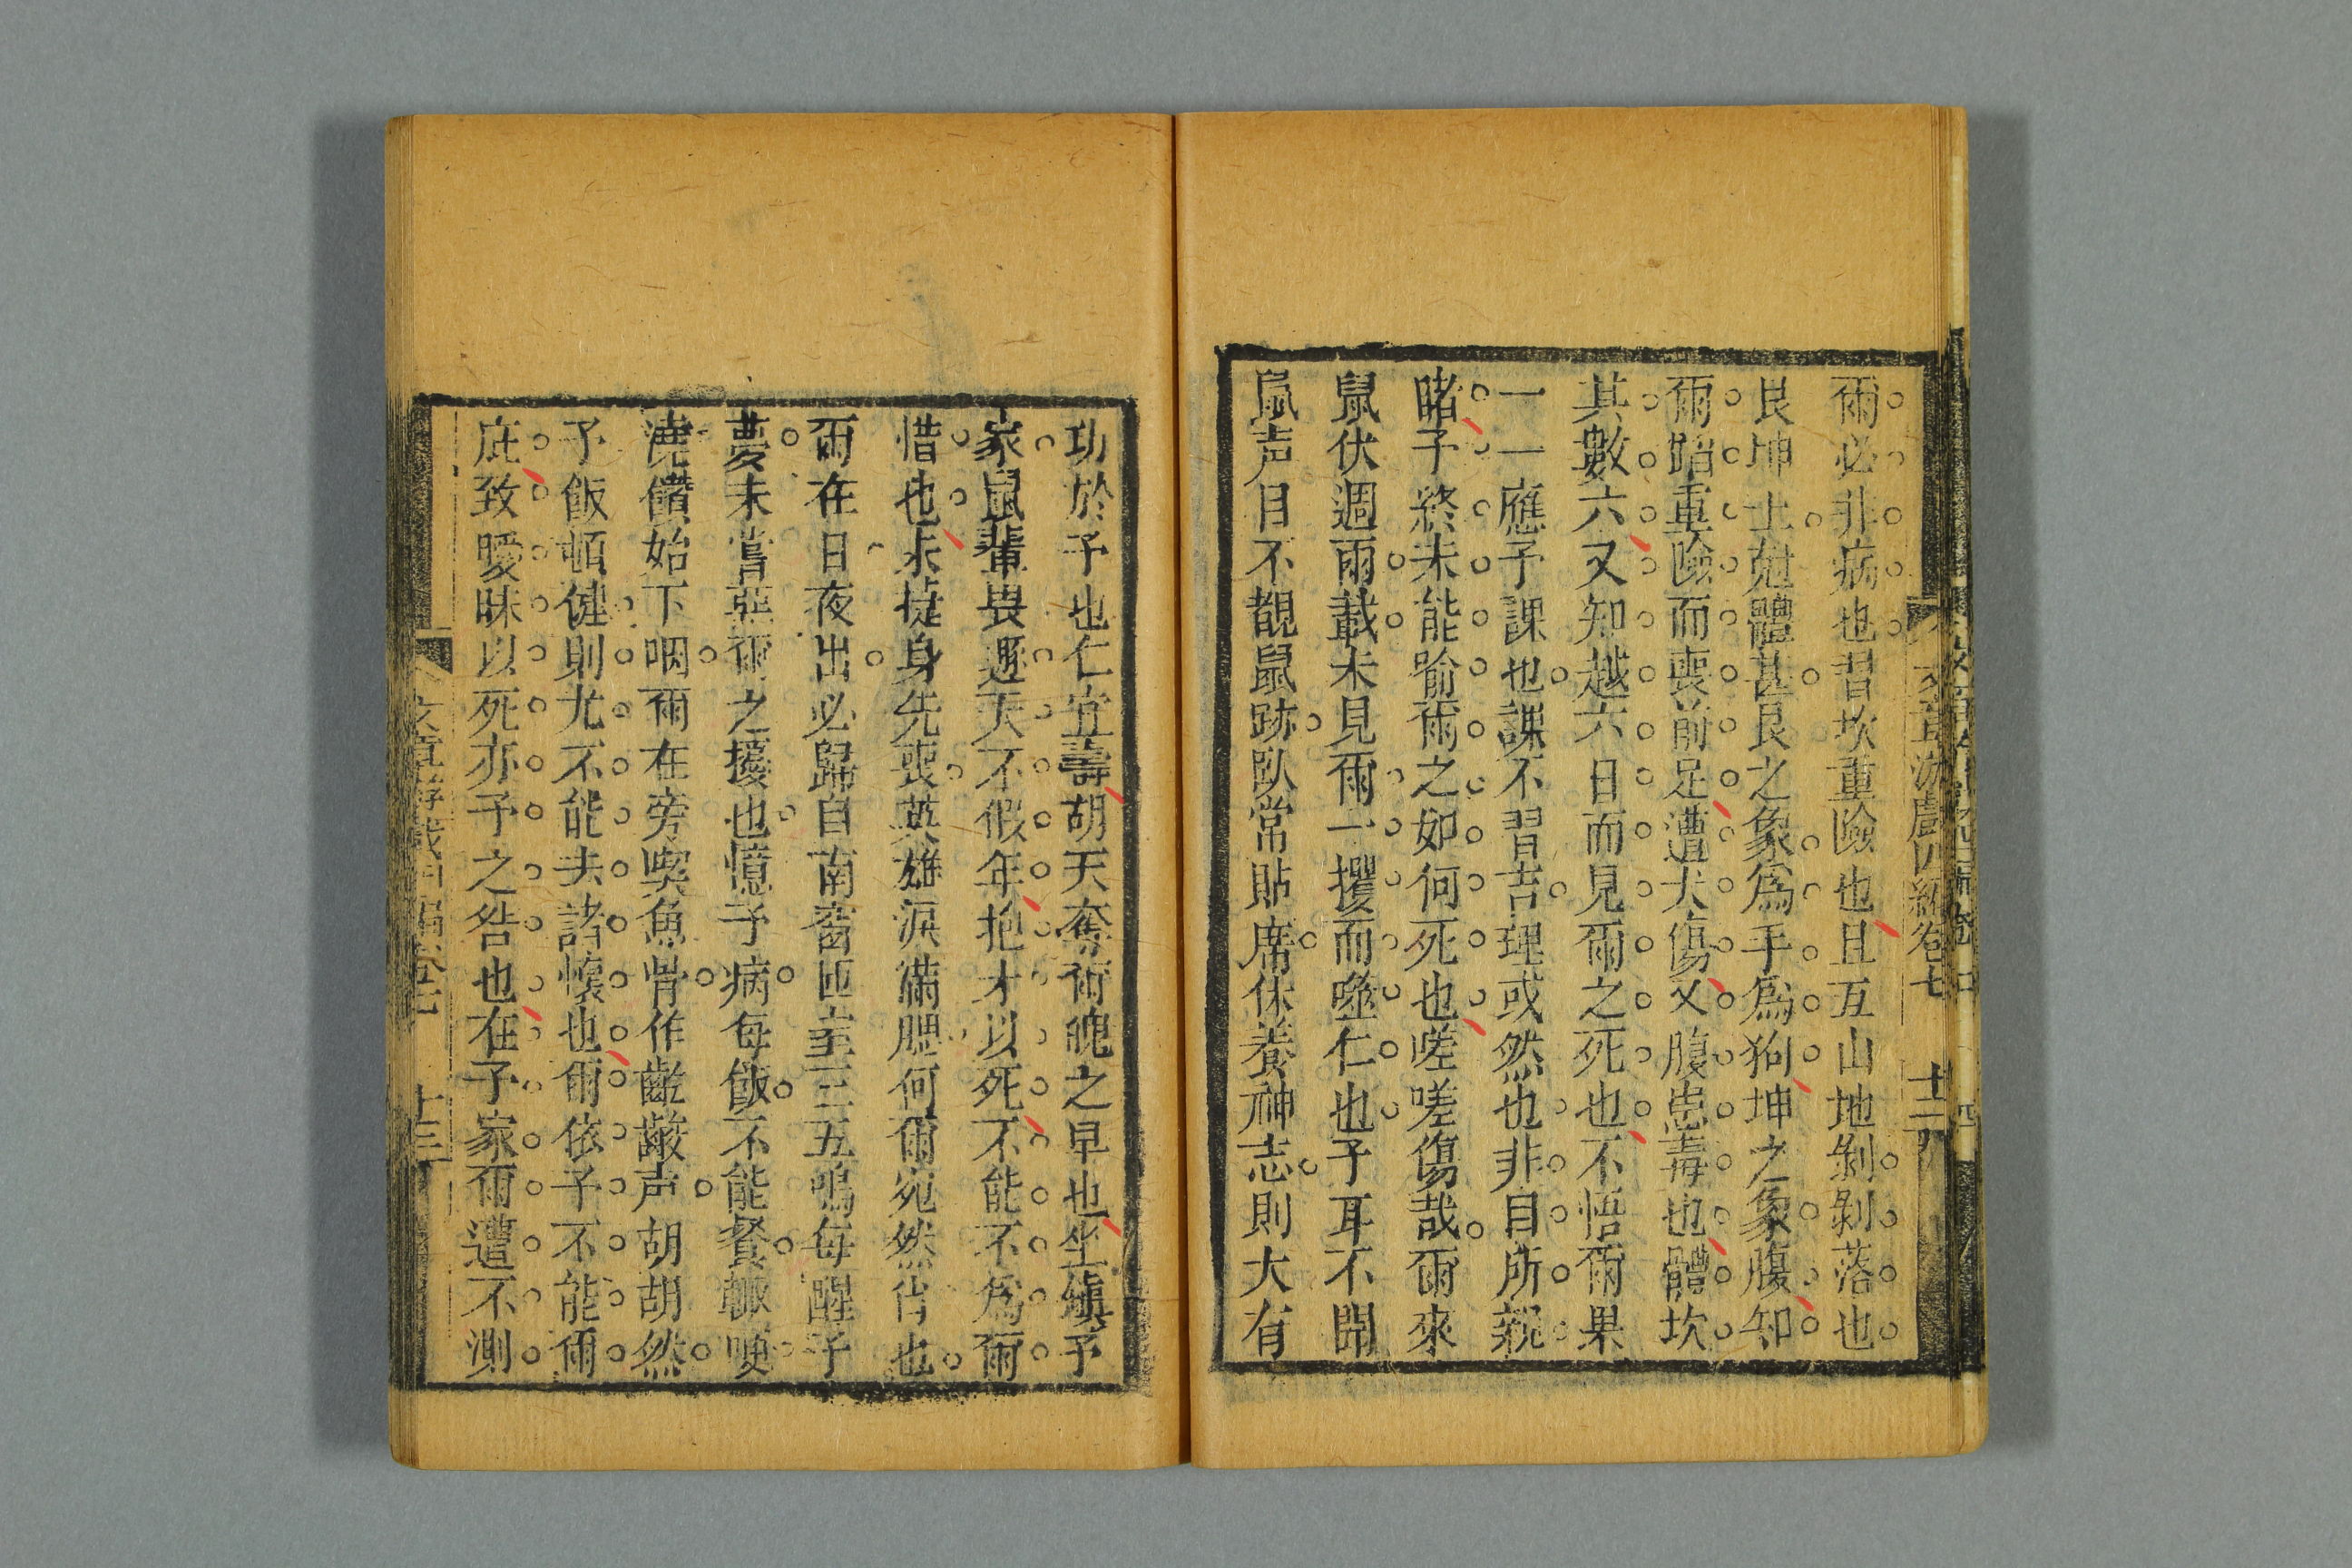 爾必非病也習坎重險也且互山地剝剝落也
艮坤土尅體甚艮之象爲手爲狗坤之象腹知
爾蹈重險而喪前足遭犬傷又腹患毒也體坎
其數六又知越六日而見爾之死也不悟爾果
一一應予課也課不習吉理或然也非目所親
睹予終未能喻爾之如何死也嗟嗟傷哉爾來
鼠伏週兩載未見爾一攫而噬仁也予耳不聞
鼠声目不覩鼠跡臥常貼席休養神志則大有
功於予也仁宜壽胡天奪爾魄之早也坐縝予
家鼠輩畏遯天不假年抱才以死不能不爲爾
惜也未捷身先喪英雄淚滿腮何爾宛然肖也
爾在日夜出必歸自南窗匝至三五鳴每醒予
夢未嘗惡爾之擾也憶予病每飯不能餐輙哽
澆饡始下咽爾在旁喫魚骨作齩齩声胡胡然
予飯頓健則尤不能去諸懷也爾依予不能爾
庇致曖昧以死亦予之咎也在予家爾遭不測
文章游戲四編卷七 十二
文章游戲四編卷七 十三